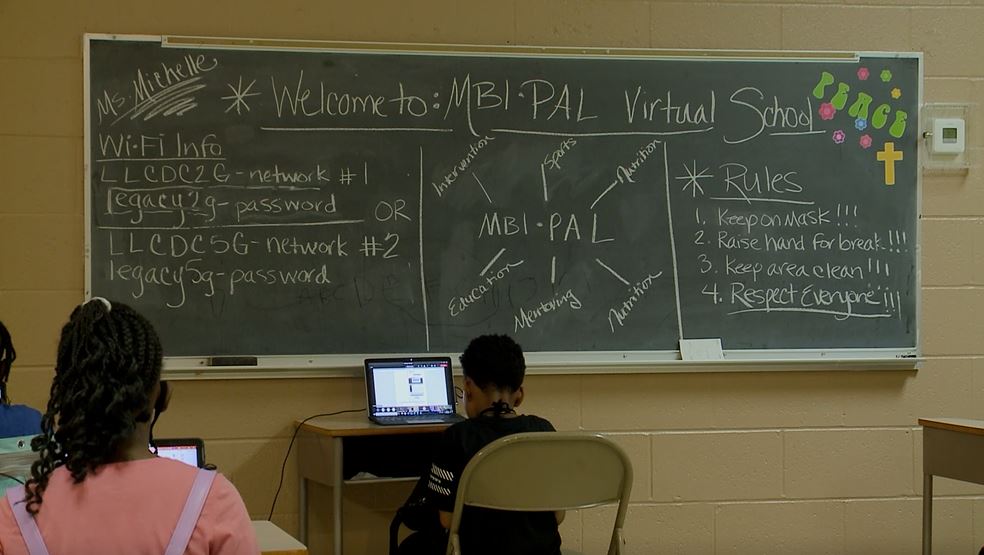 Ms. Michelle
* Welcome to: MBI•PAL Virtual School
PEACE
Wi-Fi Info
LLCDC2G-network #1
legacy2g-password
OR
LLCDC5G-network #2
legacy5g-password
Intervention
Sports
Nutrition
MBI•PAL
Education
Mentoring
Nutrition
* Rules
1. Keep on Mask!!!
2. Raise hand for break!!!
3. Keep area clean!!!
4. Respect Everyone!!!